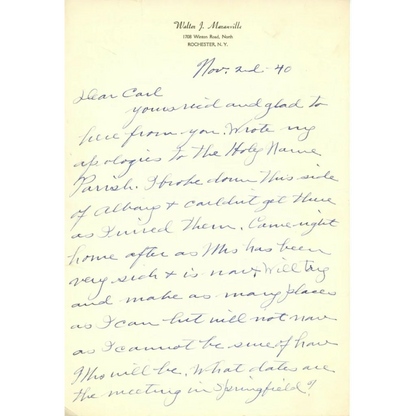 Walter J. Maranville
1708 Winton Road, North
ROCHESTER, N. Y.
Nov. 2d - 40
Dear Carl
Yours rec'd and glad to
hear from you. Wrote my
apologies to the Holy Name
Parish. I broke down this side
of Albany & couldn't get there
as I wired them. Came right
home after as Mrs has been
very sick & is now. Will try
and make as many places
as I can but will not now
as I cannot be sure of how
Mrs will be. What dates are
the meeting in Springfield?